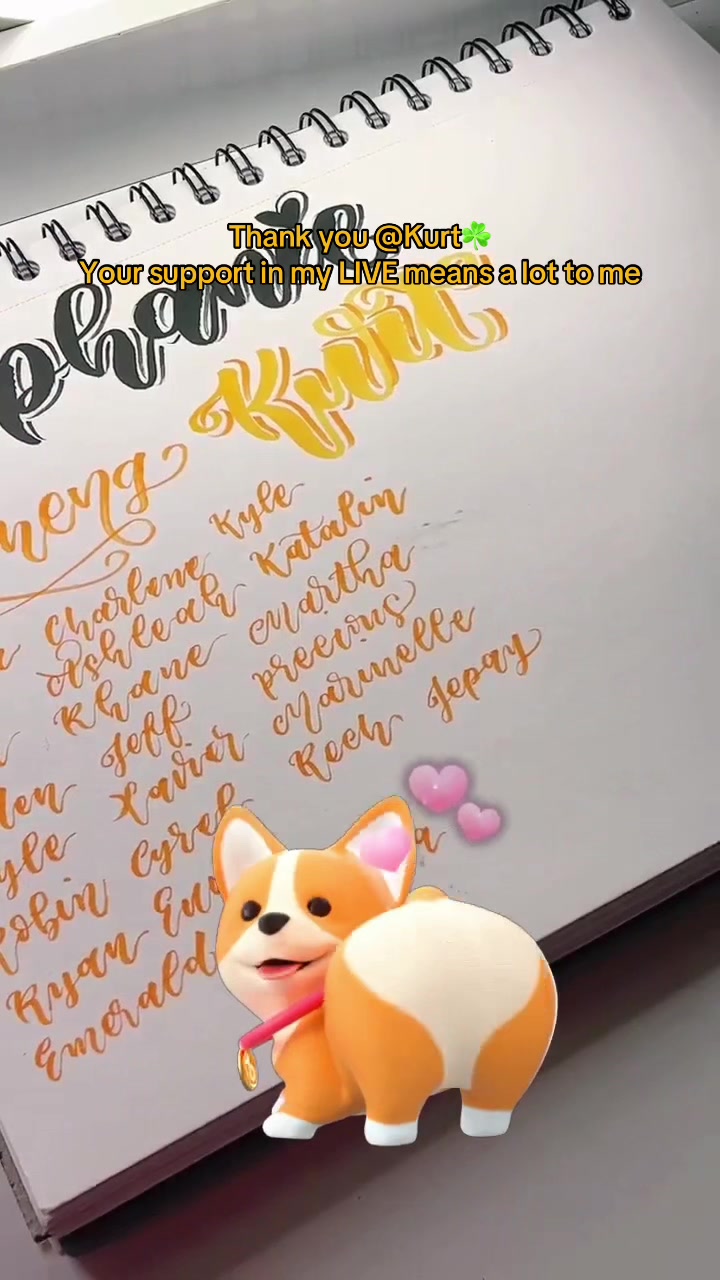 Thank you @Kurt☘️
Your support in my LIVE means a lot to me
phanie
Kurt
neng
Kyle
Charlene Katalin
Ashleah Martha
Khane precious
Jeff Marinelle
Xavier Kech Jepay
Cyrel
Robin
Ryan
Emerald